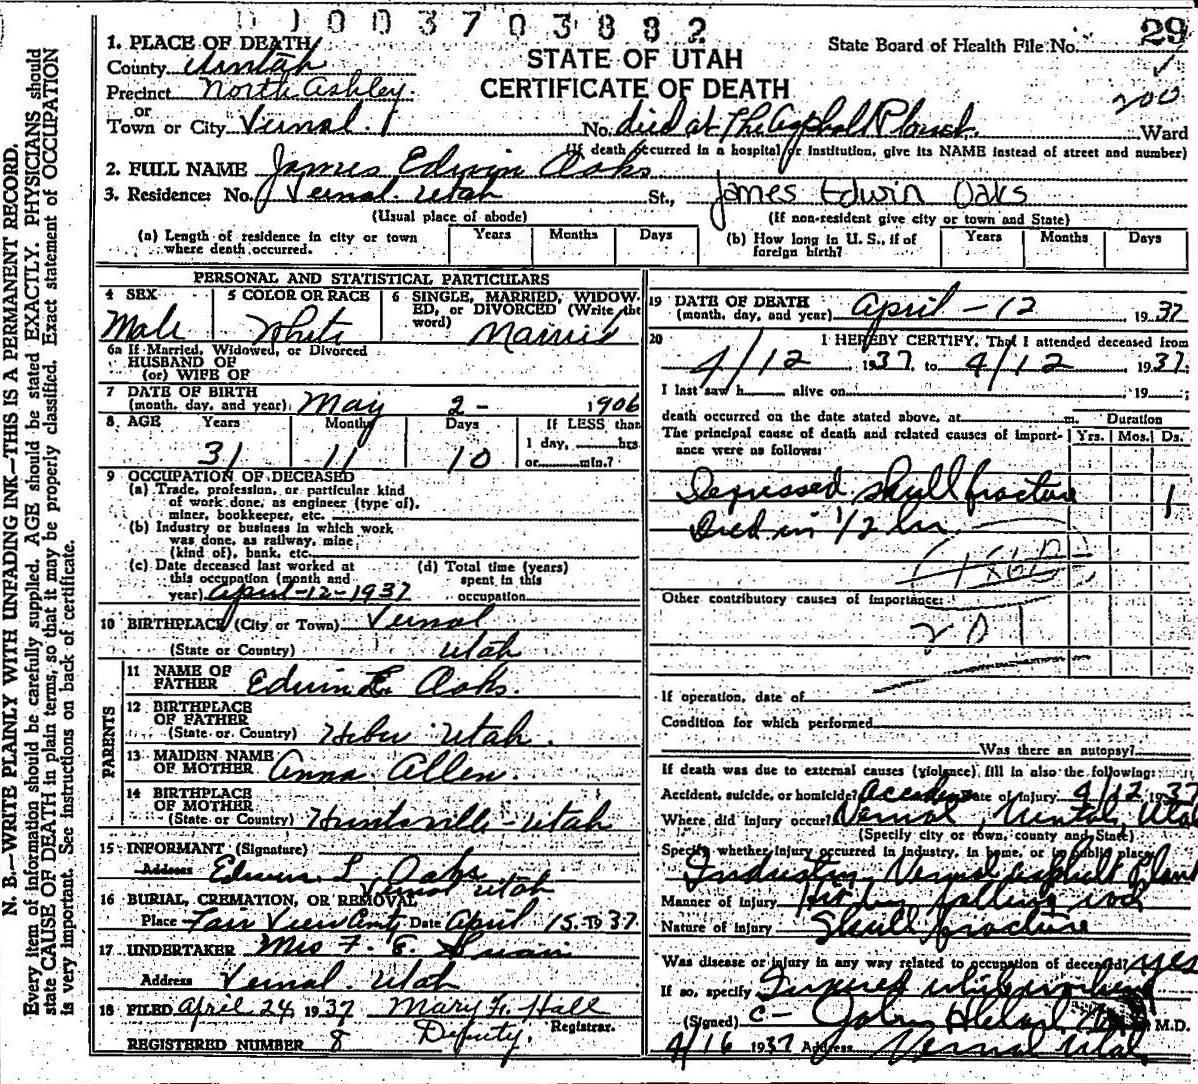 D I 0 0 3 7 0 3 8 8 2
29
State Board of Health File No.
200
STATE OF UTAH
CERTIFICATE OF DEATH
1. PLACE OF DEATH
County Uintah
Precinct North Ashley.
or
Town or City Vernal. No. died at The Asphalt Plant. Ward
(If death occurred in a hospital or institution, give its NAME instead of street and number)
2. FULL NAME James Edwin Oaks
3. Residence: No. Vernal. Utah St., James Edwin Oaks
(Usual place of abode) (If non-resident give city or town and State)
(a) Length of residence in city or town where death occurred. Years Months Days
(b) How long in U. S., if of foreign birth? Years Months Days
PERSONAL AND STATISTICAL PARTICULARS
4 SEX Male
5 COLOR OR RACE White
6 SINGLE, MARRIED, WIDOWED, or DIVORCED (Write the word) Married
6a If Married, Widowed, or Divorced
HUSBAND OF
(or) WIFE OF
7 DATE OF BIRTH
(month, day, and year) May 2 - 1906
8 AGE Years Months Days If LESS than
31 11 10 1 day, hrs
or min.?
9 OCCUPATION OF DECEASED
(a) Trade, profession, or particular kind
of work done, as engineer (type of),
miner, bookkeeper, etc.
(b) Industry or business in which work
was done, as railway, mine
(kind of), bank, etc.
(c) Date deceased last worked at
this occupation (month and
year) April-12-1937
(d) Total time (years)
spent in this
occupation
10 BIRTHPLACE (City or Town) Vernal
(State or Country) Utah
PARENTS
11 NAME OF
FATHER Edwin E. Oaks.
12 BIRTHPLACE
OF FATHER
(State or Country) Heber Utah.
13 MAIDEN NAME
OF MOTHER Anna Allen.
14 BIRTHPLACE
OF MOTHER
(State or Country) Huntsville - Utah
15 INFORMANT (Signature)
Address Edwin Oaks
Vernal Utah
16 BURIAL, CREMATION, OR REMOVAL
Place Fair View Date April 15 - 1937
17 UNDERTAKER Mrs F. E. Swain
Address Vernal. Utah
18 FILED April 24, 1937 Mary F. Hall
Deputy. Registrar.
REGISTERED NUMBER 8
19 DATE OF DEATH
(month, day, and year) April - 12 1937
20 I HEREBY CERTIFY, That I attended deceased from
4/12 1937, to 4/12 1937.
I last saw h alive on 19
death occurred on the date stated above, at m. Duration
The principal cause of death and related causes of importance were as follows: Yrs. Mos. Ds.
Depressed skull fracture 1
Died in 1/2 hr
Other contributory causes of importance:
201
If operation, date of
Condition for which performed
Was there an autopsy?
If death was due to external causes (violence) fill in also the following:
Accident, suicide, or homicide? Accident Date of injury 4/12 1937
Where did injury occur? Vernal, Uintah, Utah
(Specify city or town, county and State)
Specify whether injury occurred in industry, in home, or in public place
Industry Vernal asphalt Plant
Manner of injury Hit by falling rock
Nature of injury Skull fracture
Was disease or injury in any way related to occupation of deceased? yes
If so, specify Injured while working
(Signed) M.D.
4/16 1937 Address Vernal Utah
N. B.—WRITE PLAINLY WITH UNFADING INK—THIS IS A PERMANENT RECORD.
Every item of information should be carefully supplied. AGE should be stated EXACTLY. PHYSICIANS should
state CAUSE OF DEATH in plain terms, so that it may be properly classified. Exact statement of OCCUPATION
is very important. See instructions on back of certificate.